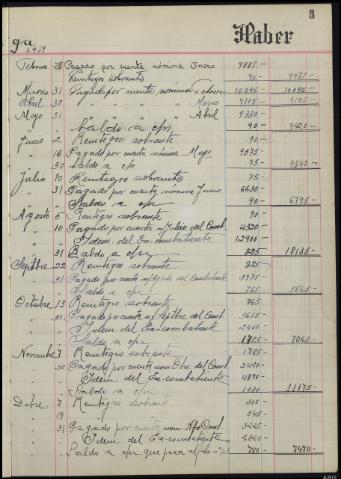 8
Haber
1939
Febrero 28 Pagado por cuenta nómina Enero 9885-
Reintegro sobrante 90- 9975-
Marzo 31 Pagado por cuenta nomina Febrero 10095- 10095-
Abril 30 " " " Marzo 9105- 9105-
Mayo 31 " " " Abril 9330-
" Saldo a c/n 90- 9420-
Junio 2 Reintegro sobrante 90-
" 16 Pagado por cuenta nómina Mayo 9375-
" 30 Saldo a c/n 75- 9540-
Julio 10 Reintegro sobrante 75-
" 31 Pagado por cuenta nómina Junio 6630-
" Saldo a c/n 90- 6795-
Agosto 5 Reintegro sobrante 90-
" 10 Pagado por cuenta n/ Julio del Comb. 4320-
" Idem. del Ex-combatiente 12900-
" 31 Saldo a c/n 825- 18135-
Septbre 22 Reintegro sobrante 825-
" 31 Pagado por cuenta del Combatiente 3975-
" Saldo a c/n 765 5565-
Octubre 13 Reintegro sobrante 765-
" 31 Pagado por cuenta n/ Septbre del Comb. 3615-
" Idem. del Ex-combatiente 2400-
" Saldo a c/n 1785 7065-
Noviembre 7 Reintegro sobrante 1785-
" 30 Pagado por cuenta nom Obre del Comb. 3480-
" Idem. del Ex-combatiente 4890-
" Saldo a c/n 1020 11175-
Dcbre 7 Reintegro sobrante
" 19 " " 345-
" 31 Pagado por cuenta nom. del Comb. 3225-
" Idem. del Ex-combatiente
Saldo a c/n que pasa al folio 780 7470-